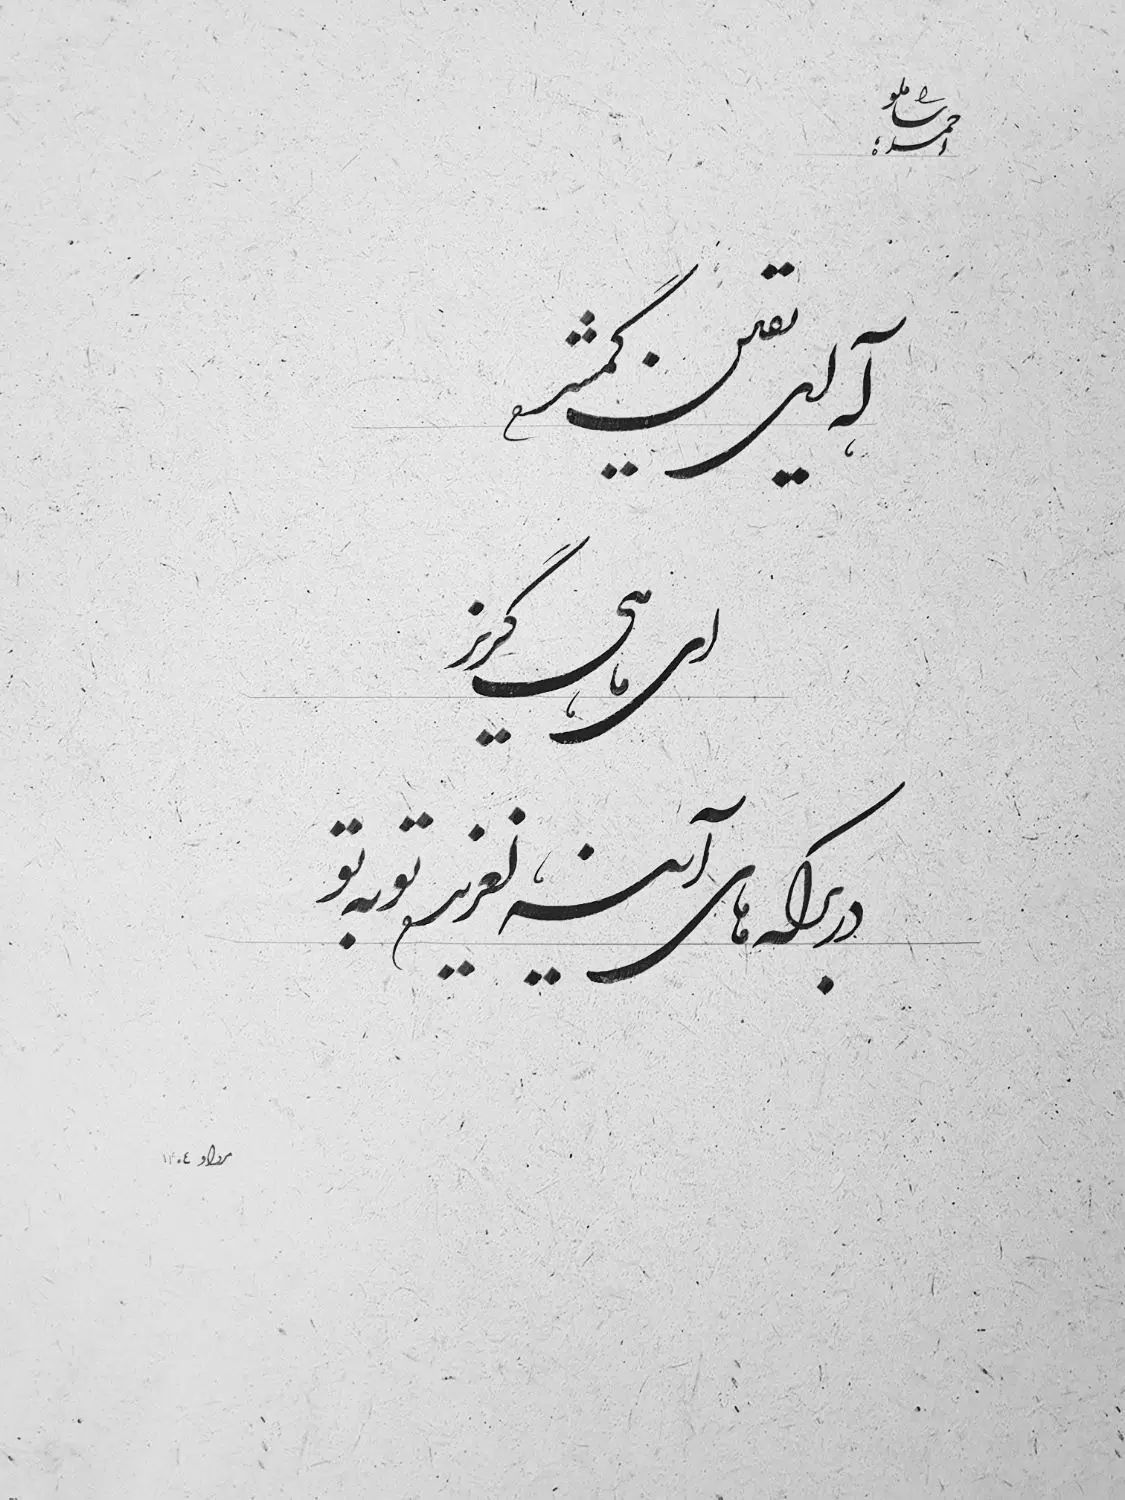 احمد شاملو
آه ای یقین گمشده
ای ماهی گریز
در برکه های آینه لغزیده تو به تو
مرداد ۱۴۰۴